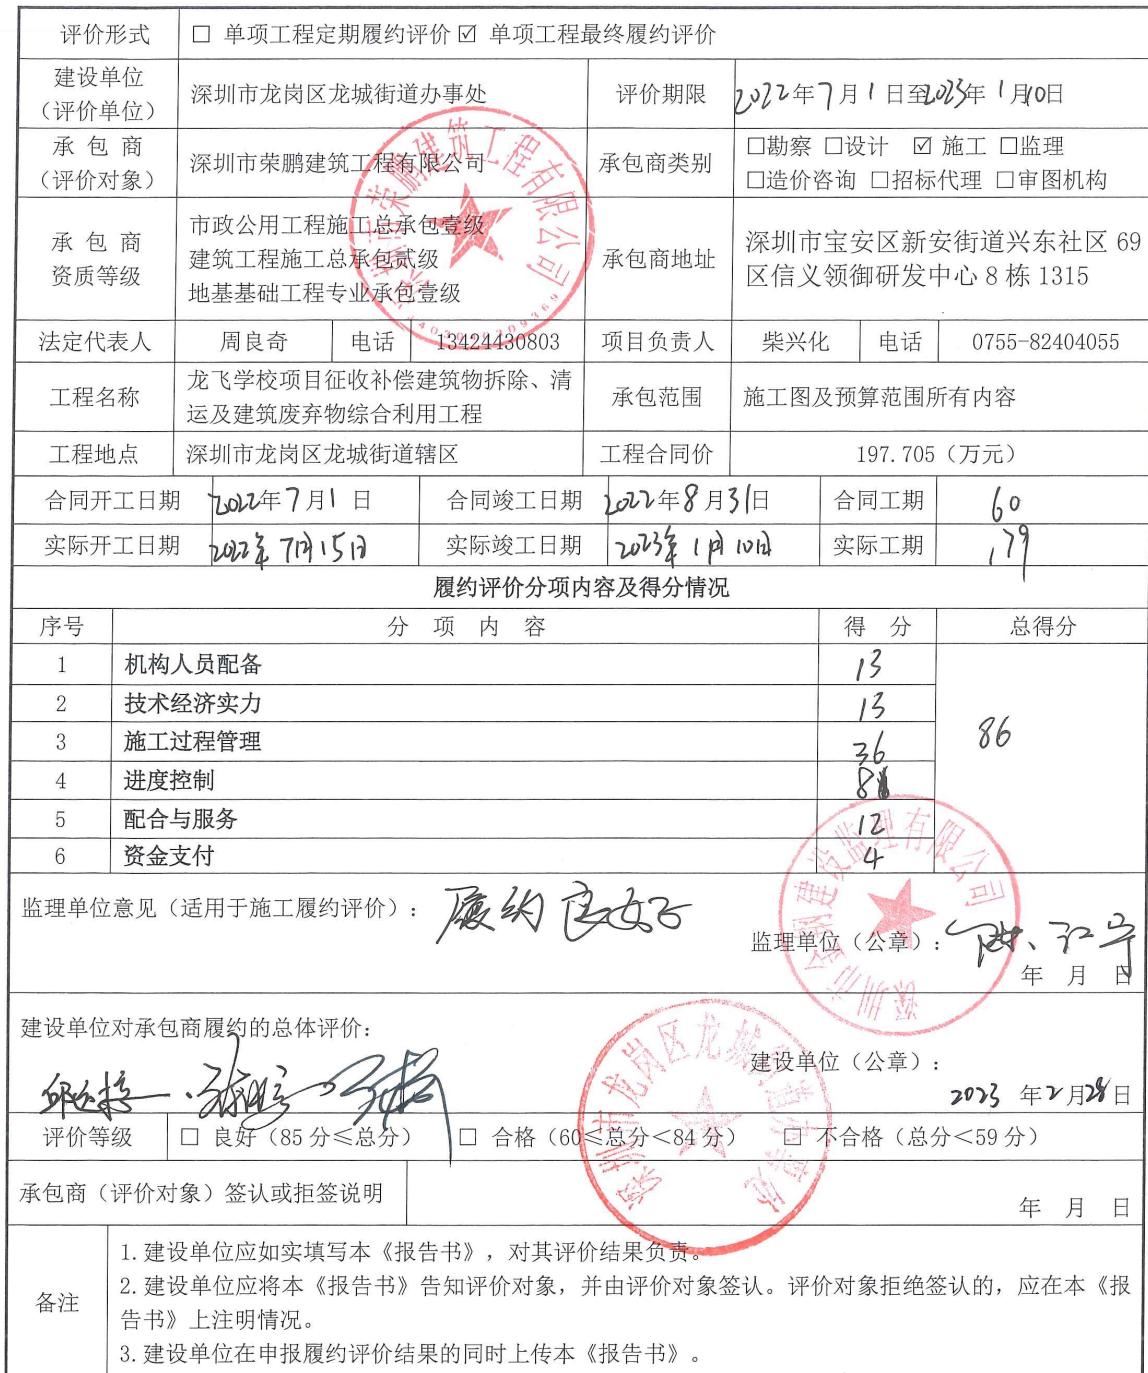 评价形式 □ 单项工程定期履约评价 ☑ 单项工程最终履约评价
建设单位
（评价单位） 深圳市龙岗区龙城街道办事处 评价期限 2022年7月1日至2023年1月10日
承包商
（评价对象） 深圳市荣鹏建筑工程有限公司 承包商类别 □勘察 □设计 ☑ 施工 □监理
□造价咨询 □招标代理 □审图机构
承包商
资质等级
市政公用工程施工总承包壹级
建筑工程施工总承包贰级
地基基础工程专业承包壹级
承包商地址 深圳市宝安区新安街道兴东社区 69
区信义领御研发中心 8 栋 1315
法定代表人 周良奇 电话 13424430803 项目负责人 柴兴化 电话 0755-82404055
工程名称 龙飞学校项目征收补偿建筑物拆除、清
运及建筑废弃物综合利用工程
承包范围 施工图及预算范围所有内容
工程地点 深圳市龙岗区龙城街道辖区 工程合同价 197.705（万元）
合同开工日期 2022年7月1日 合同竣工日期 2022年8月31日 合同工期 60
实际开工日期 2022年7月15日 实际竣工日期 2023年1月10日 实际工期 179
履约评价分项内容及得分情况
序号 分项内容 得分 总得分
1 机构人员配备 13
2 技术经济实力 13
3 施工过程管理 36 86
4 进度控制 8
5 配合与服务 12
6 资金支付 4
监理单位意见（适用于施工履约评价）： 履约良好
监理单位（公章）：
年 月 日
深圳市金钢建设监理有限公司
建设单位对承包商履约的总体评价：
建设单位（公章）：
2023 年2月28日
深圳市龙岗区龙城街道办事处
评价等级 □ 良好（85分≤总分） □ 合格（60≤总分＜84分） □ 不合格（总分＜59分）
承包商（评价对象）签认或拒签说明 年 月 日
备注
1.建设单位应如实填写本《报告书》，对其评价结果负责。
2.建设单位应将本《报告书》告知评价对象，并由评价对象签认。评价对象拒绝签认的，应在本《报
告书》上注明情况。
3.建设单位在申报履约评价结果的同时上传本《报告书》。